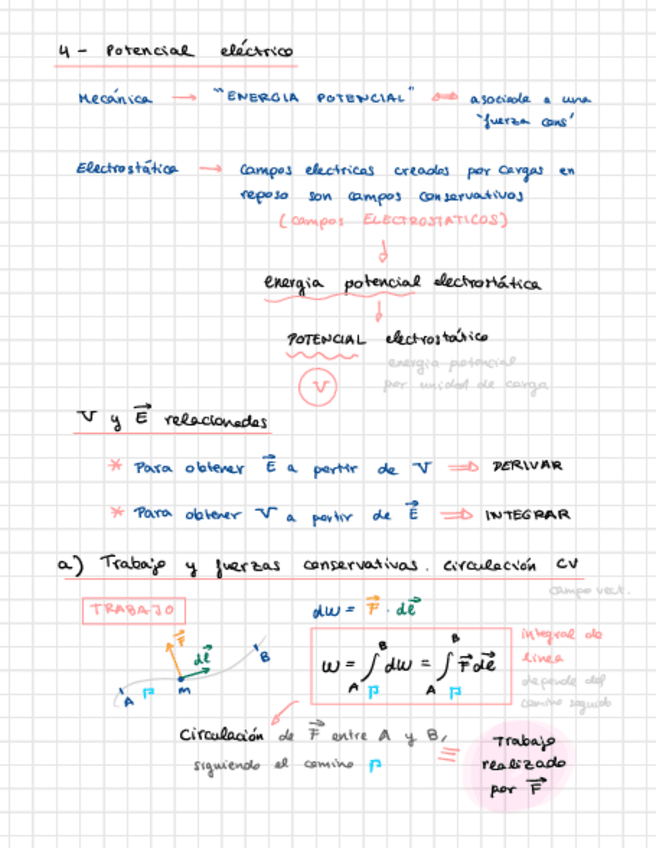 4 - Potencial eléctrico
Mecánica → "ENERGIA POTENCIAL" ↔ asociada a una
"fuerza cons"
Electrostática → campos electricos creados por cargas en
reposo son campos conservativos
(campos ELECTROSTATICOS)
energia potencial electrostática
POTENCIAL electrostático
energia potencial
por unidad de carga
V
V y E⃗ relacionados
* Para obtener E⃗ a partir de V ⇒ DERIVAR
* Para obtener V a partir de E⃗ ⇒ INTEGRAR
a) Trabajo y fuerzas conservativas. circulación CV
campo vect.
TRABAJO
dw = F⃗ · dℓ⃗
F⃗
dℓ⃗
A Γ M B
w = ∫_A^B Γ dw = ∫_A^B Γ F⃗ dℓ⃗
integral de
línea
depende del
camino seguido
Circulación de F⃗ entre A y B,
siguiendo el camino Γ
≡
Trabajo
realizado
por F⃗